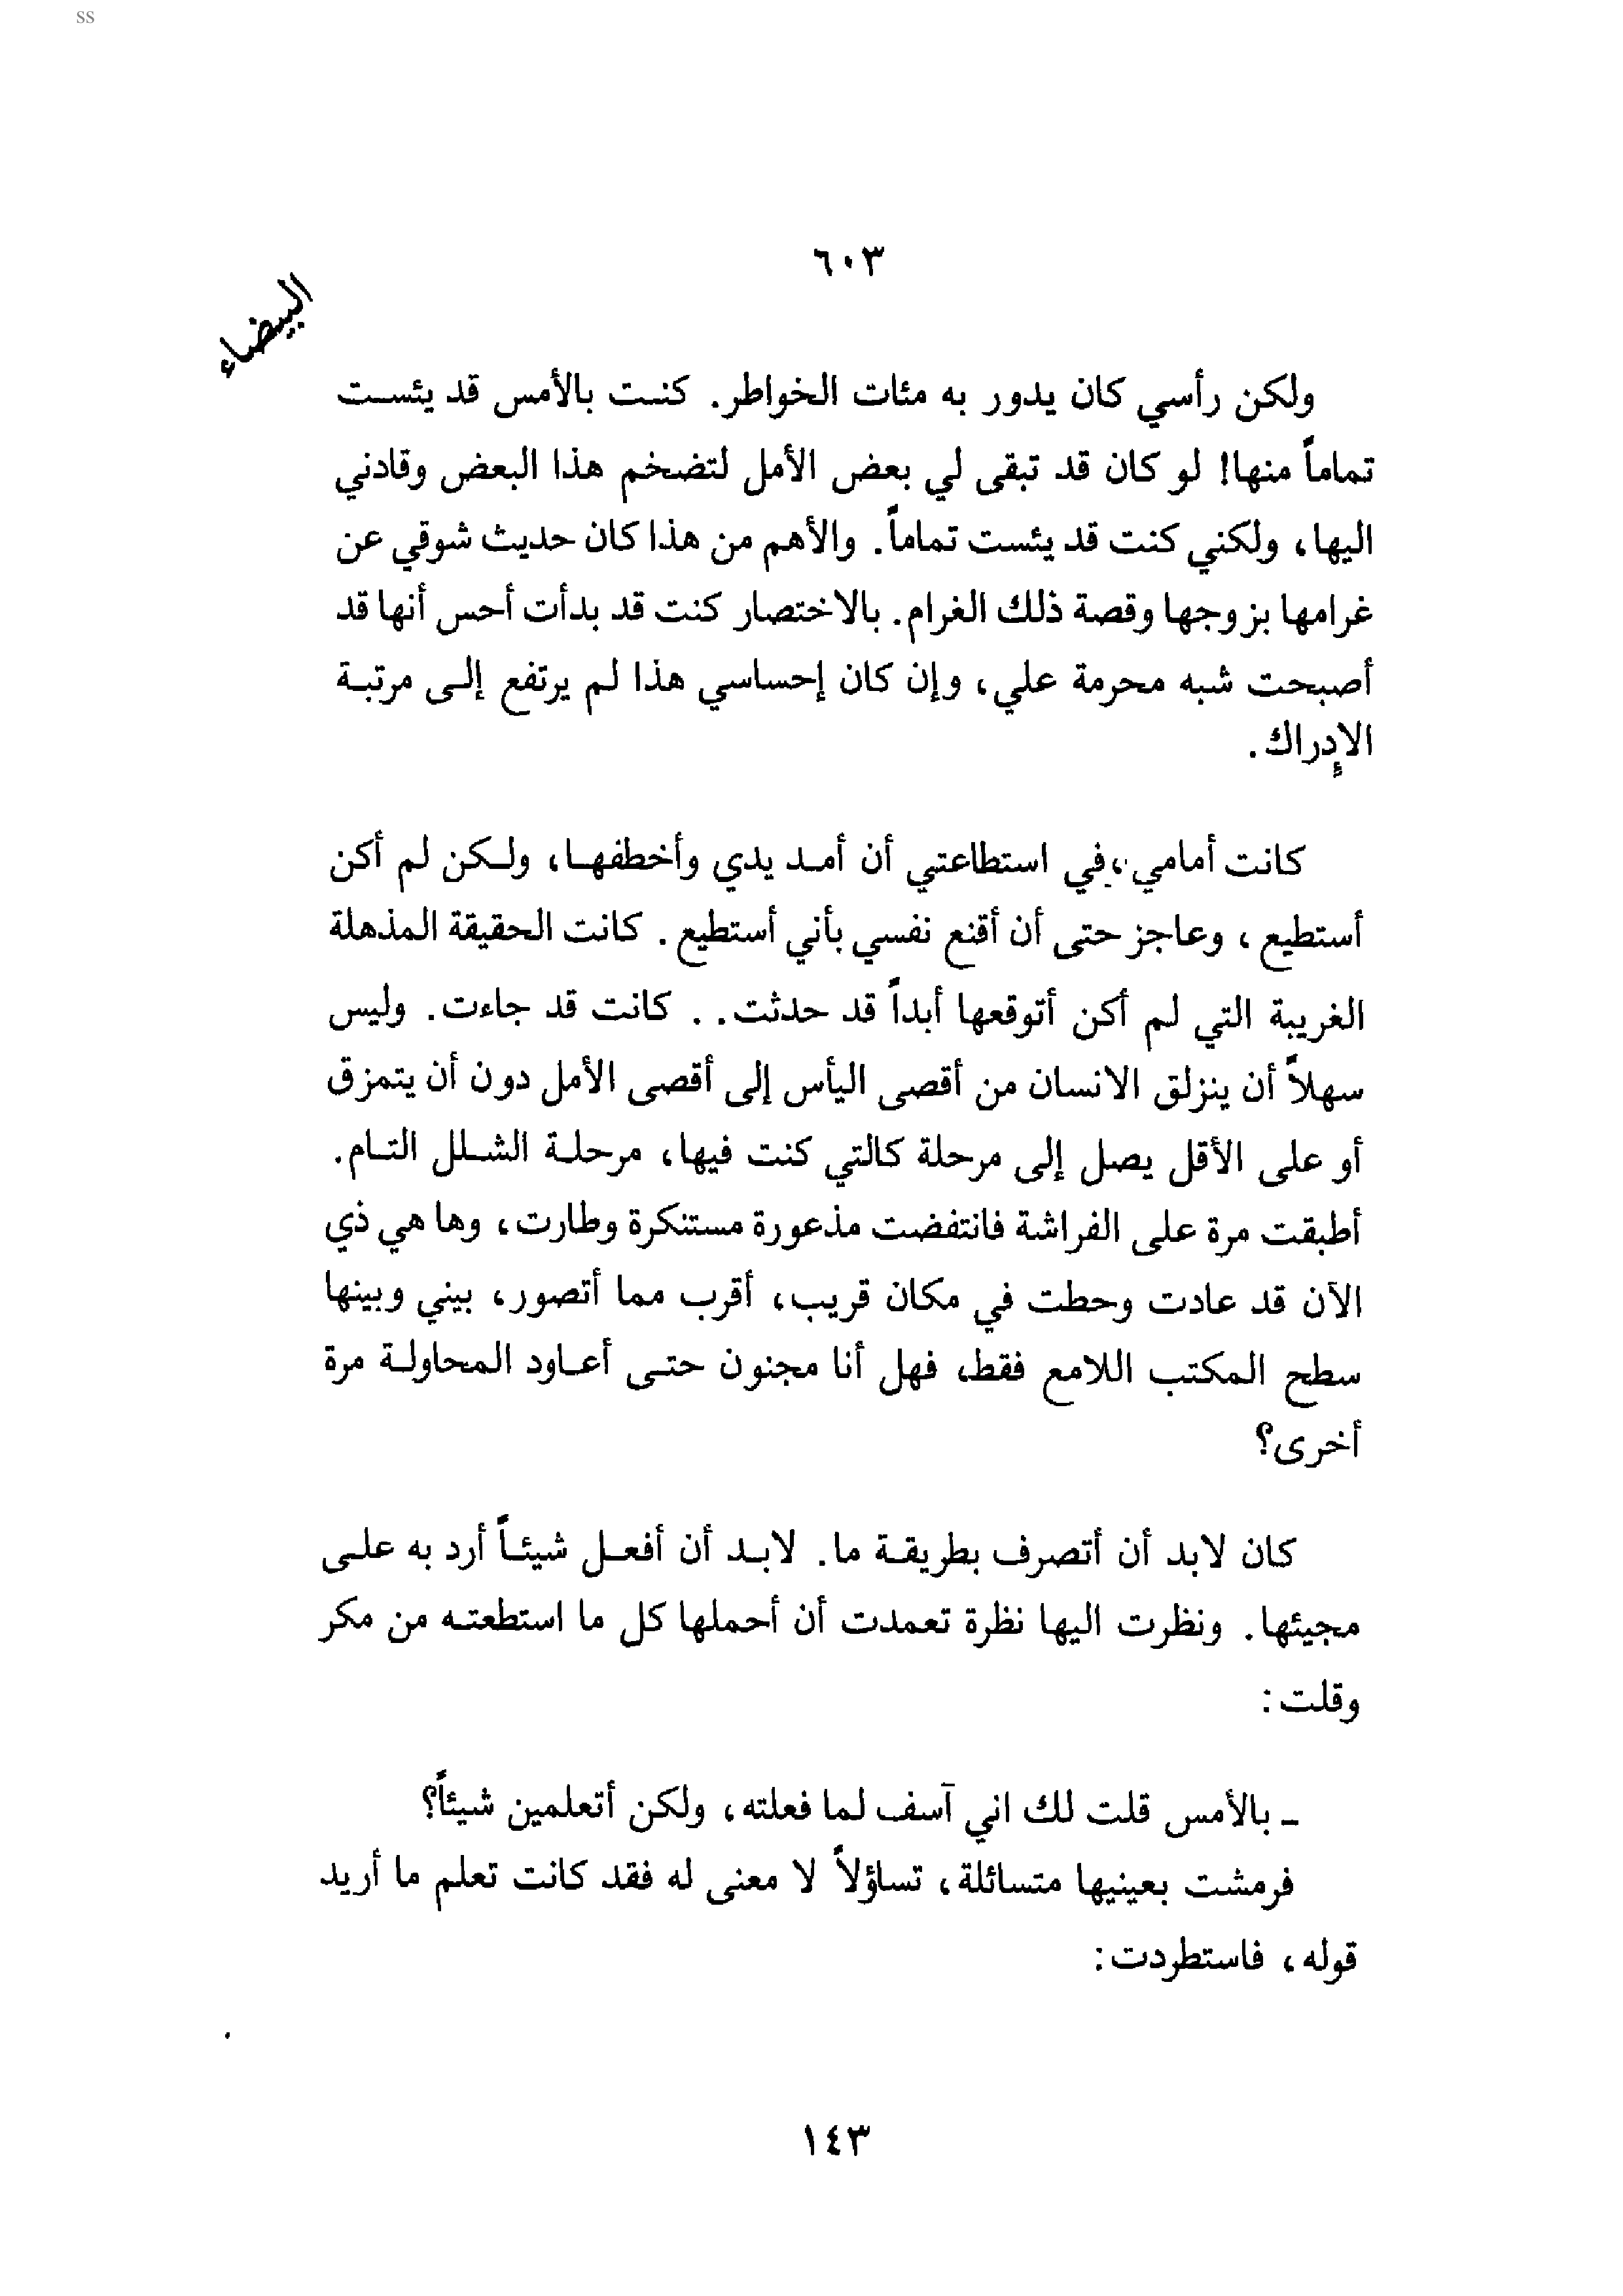 ss
٦٠٣
البيضاء
ولكن رأسي كان يدور به مئات الخواطر. كنت بالأمس قد يئست
تماماً منها! لو كان قد تبقى لي بعض الأمل لتضخم هذا البعض وقادني
اليها، ولكني كنت قد يئست تماماً. والأهم من هذا كان حديث شوقي عن
غرامها بزوجها وقصة ذلك الغرام. بالاختصار كنت قد بدأت أحس أنها قد
أصبحت شبه محرمة علي، وإن كان إحساسي هذا لم يرتفع إلى مرتبة
الإدراك.
كانت أمامي، في استطاعتي أن أمد يدي وأخطفها، ولكن لم أكن
أستطيع، وعاجز حتى أن أقنع نفسي بأني أستطيع. كانت الحقيقة المذهلة
الغريبة التي لم أكن أتوقعها أبداً قد حدثت.. كانت قد جاءت. وليس
سهلاً أن ينزلق الانسان من أقصى اليأس إلى أقصى الأمل دون أن يتمزق
أو على الأقل يصل إلى مرحلة كالتي كنت فيها، مرحلة الشلل التام.
أطبقت مرة على الفراشة فانتفضت مذعورة مستنكرة وطارت، وها هي ذي
الآن قد عادت وحطت في مكان قريب، أقرب مما أتصور، بيني وبينها
سطح المكتب اللامع فقط، فهل أنا مجنون حتى أعاود المحاولة مرة
أخرى؟
كان لابد أن أتصرف بطريقة ما. لابد أن أفعل شيئاً أرد به على
مجيئها. ونظرت اليها نظرة تعمدت أن أحملها كل ما استطعته من مكر
وقلت:
ـ بالأمس قلت لك اني آسف لما فعلته، ولكن أتعلمين شيئاً؟
فرمشت بعينيها متسائلة، تساؤلاً لا معنى له فقد كانت تعلم ما أريد
قوله، فاستطردت:
١٤٣